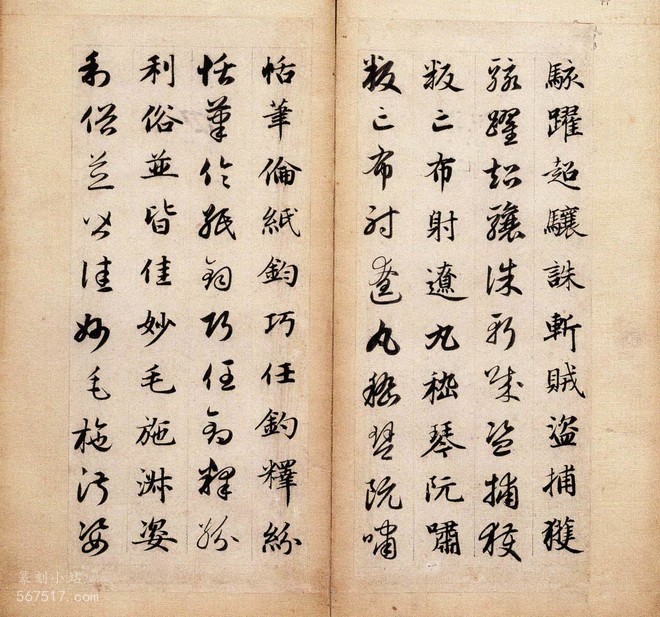 駭躍超驤誅斬賊盜捕獲
駭躍超驤誅斬賊盜捕獲
叛亡布射遼丸嵇琴阮嘯
叛亡布射遼丸嵇琴阮嘯
恬筆倫紙鈞巧任釣釋紛
恬筆倫紙鈞巧任釣釋紛
利俗並皆佳妙毛施淑姿
利俗並皆佳妙毛施淑姿
篆刻小站
567517.com